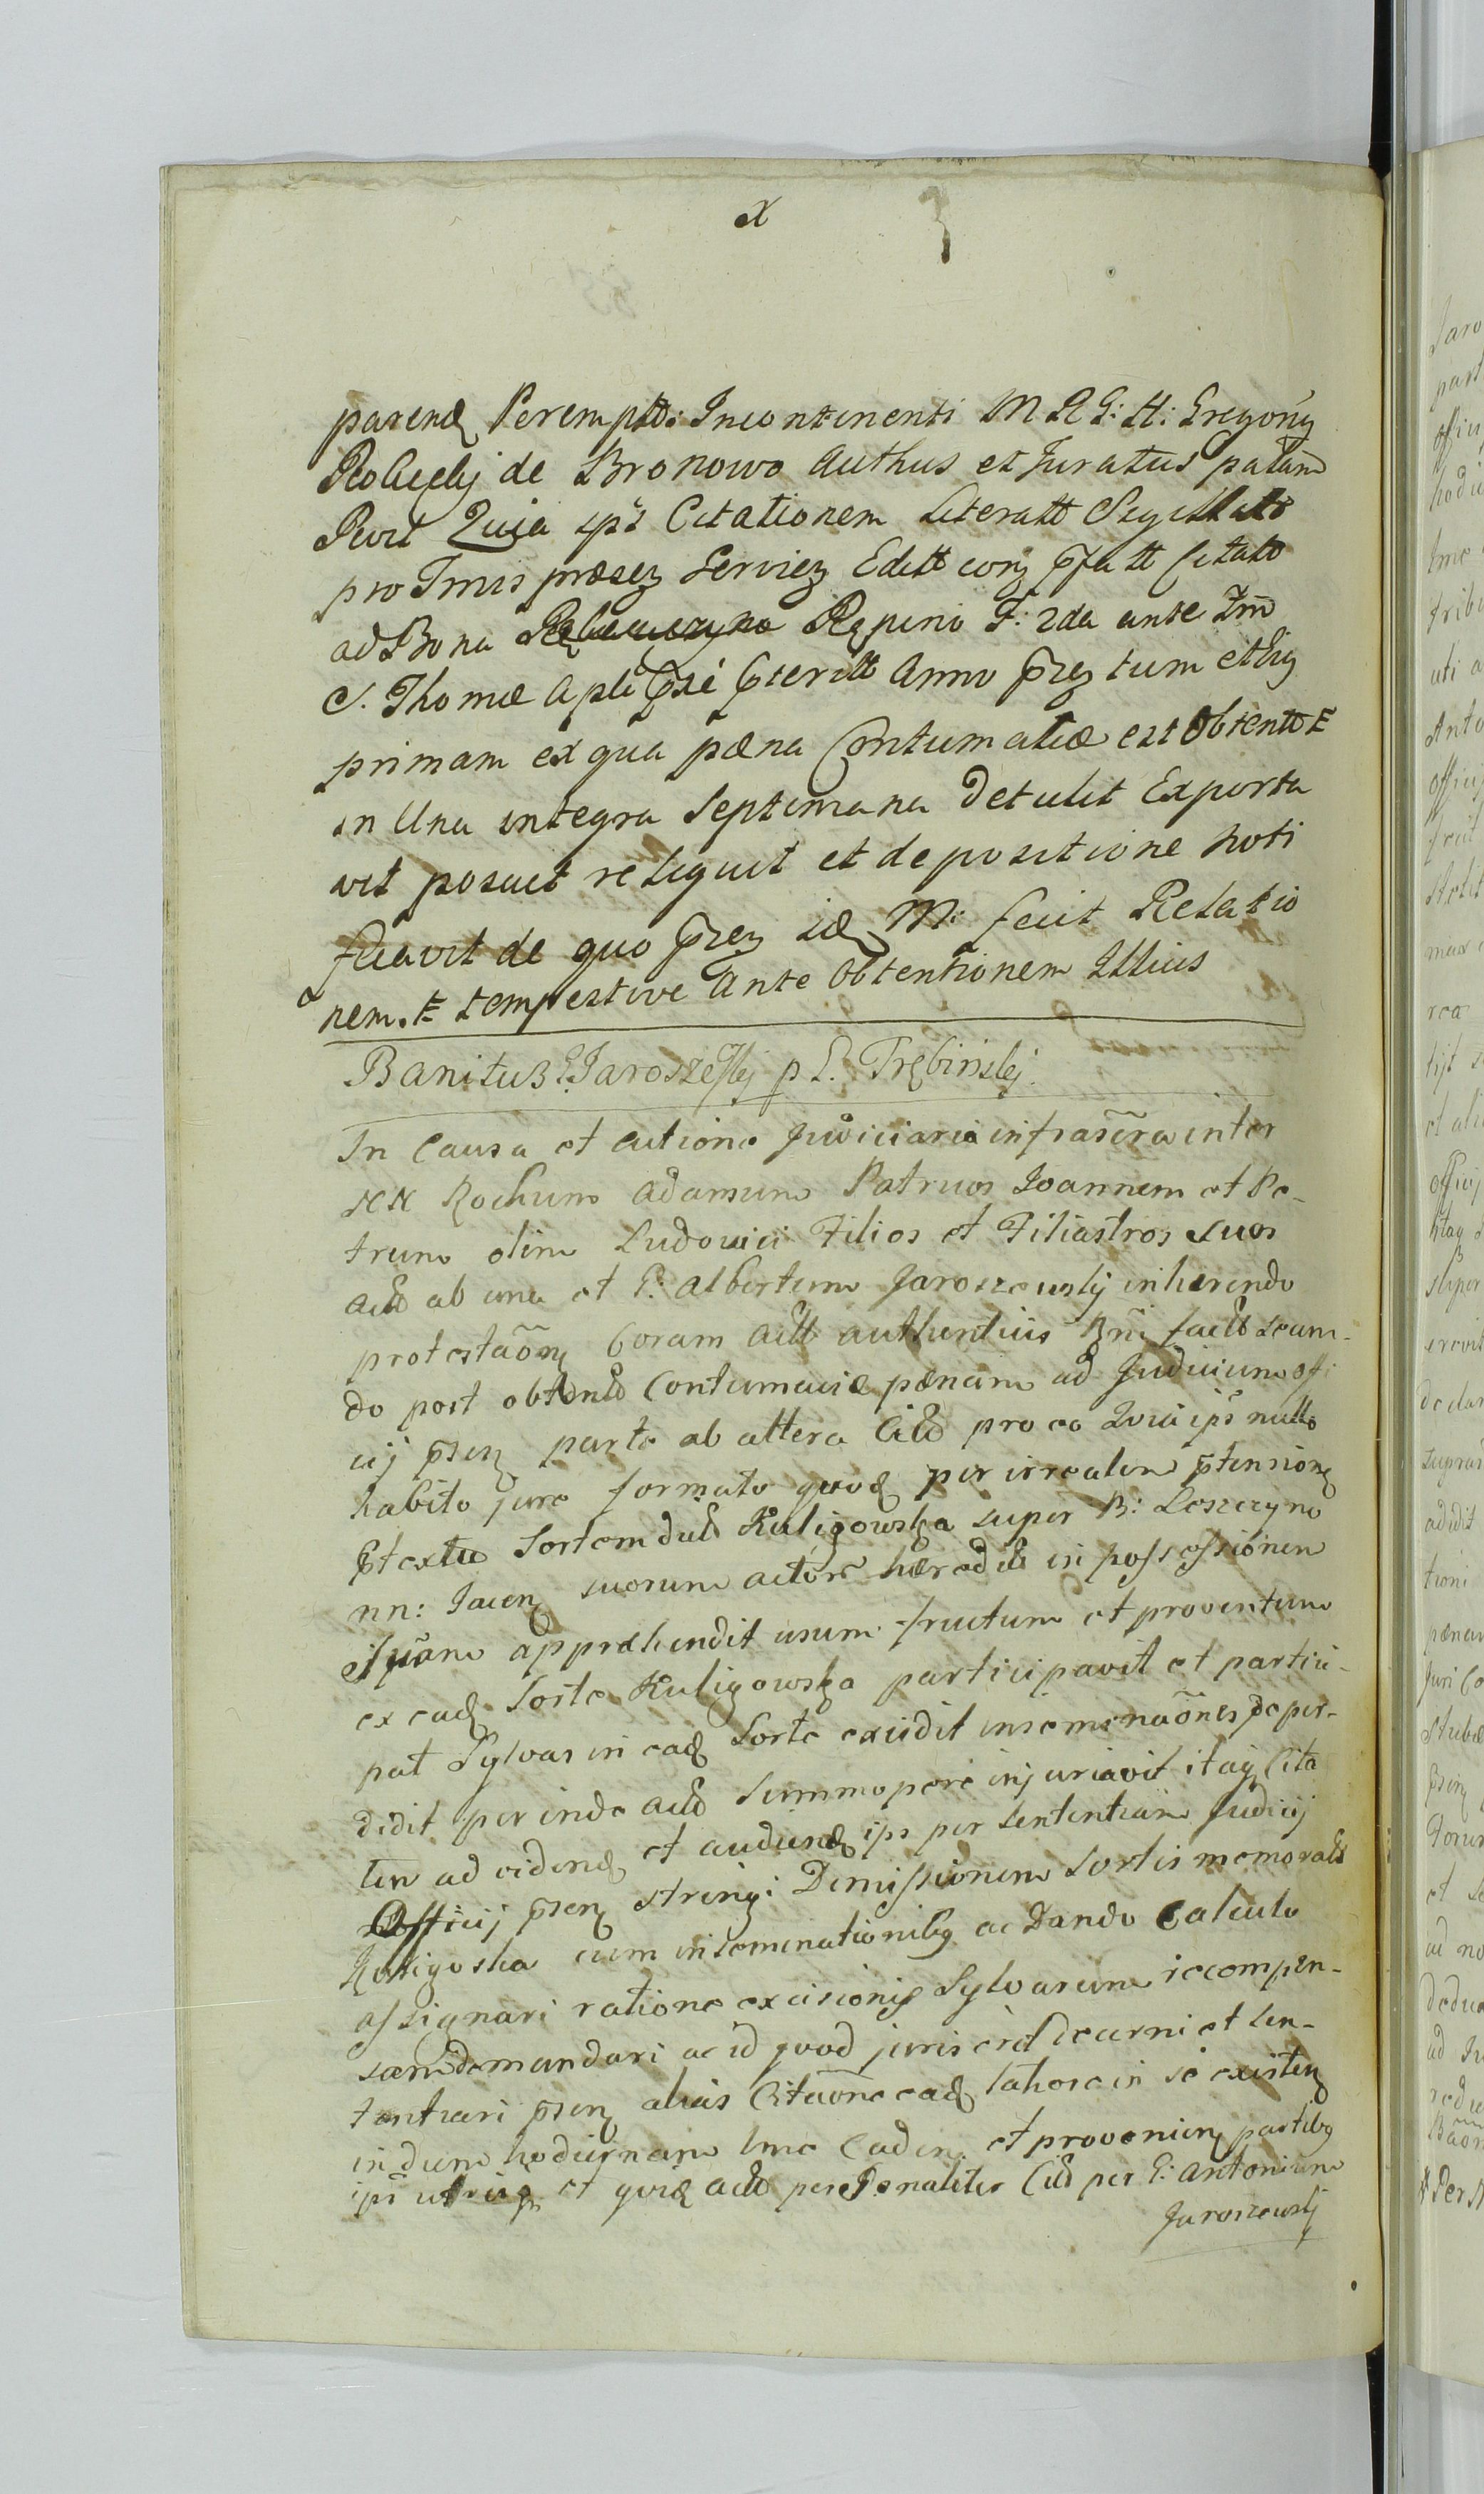 x
parend Perempto: Incontinenti M R G: H: Gregorius
de Bronowo Authus et Juratus palam
Quia ips Citationem Literatt Sigillatt
pro Tmis præsez Serviez Editt corg pfatt Citato
ad Bona Rępino F: 2da ante Fm
S. Thomæ Apli pterill Anno przez tum et hig
primam ex qua pæna Contumatiæ est Obtento E
in Una integra Septimana Detulit Exporta
vit posuit reliquit et de positione noti
ficavit de quo przez id M: fecit Relatio
nem. E tempestive ante Obtentionem Illius
Banitus G. Jaroszesky p G. Trębinsky
In Causa et Actione Judiciaria infrascra inter
NN Rochum Adamum Patruos Joannem et Pe-
trum olim Ludovici Filios et Filiastros suos
Actt ab una et G: Albertum Jaroszewsky inhærendo
protestaõni Coram Actt authenticis Bni factt secun-
do post obtentt Contumaciæ pænam ad Judicium offi
cij psenz parte ab altera Citt pro eo Quia ips nullo
habito jure formato quod per irrealem ptensionem
Ptextu Sortem dictt Kuligowska super B: Leszczyno
nn: Jacenz suorum actorē hæreditt in possessionem
suam appræhendit usum fructum et proventum
ex ead Sorte Kuligowska participavit et partici-
pat Sylvas in ead Sorte excidit inseminaõnes deper-
didit per inde Actt Summopere injuriavit itaq Cita
tum ad videnđ et audiend ips per Sententiam Judicij
Officij psenz string: Dimissionem Sortis memoratt
Kuligoska cum inseminationibg ac Dando Calculo
assignari ratione excisionis Sylvarum recompen-
sam demandari ac id quod juris erit decerni et sen-
tentiari psenz alias Citaõne ead latiore in se existenz
in diem hodiernam hnc Caden: et provenienz partibg
ips utrisq et quid Actt personaliter Citt per G: Antonium
Jaroszewsky